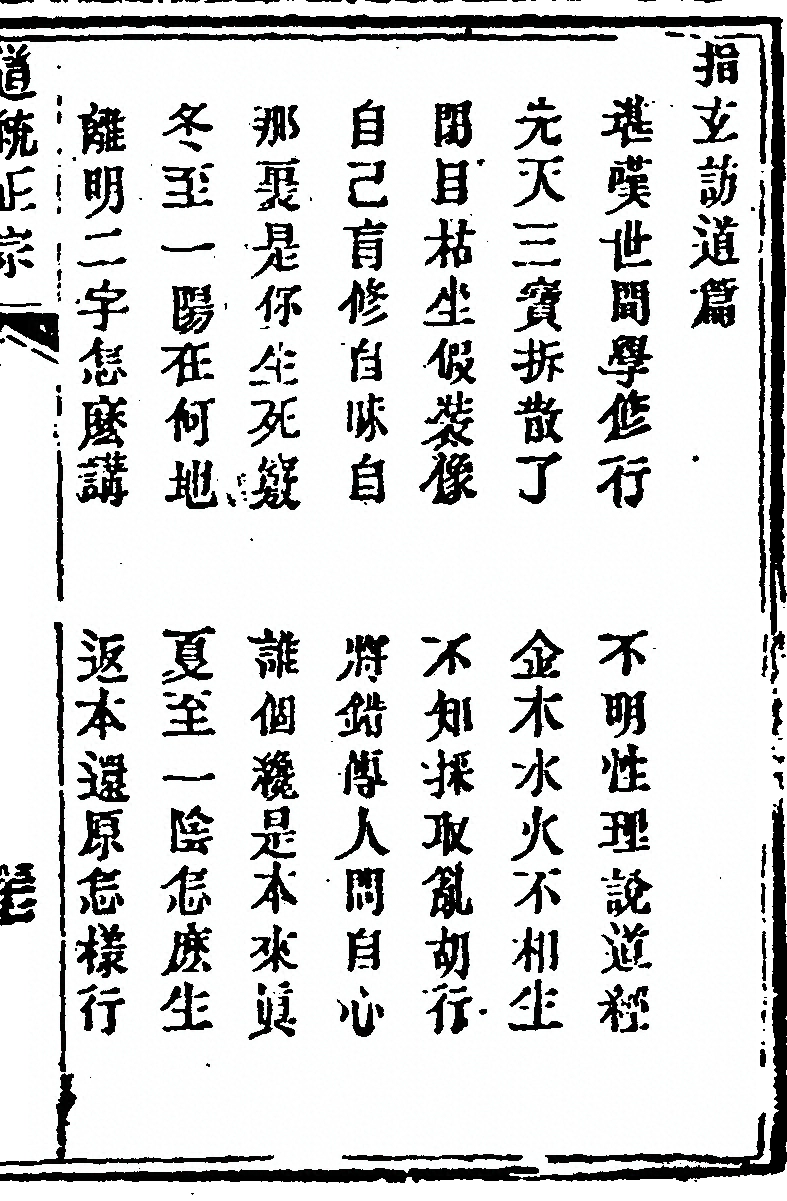 指玄訪道篇
堪嘆世間學修行　不明性理說道經
先天三寶拆散了　金木水火不相生
閉目枯坐假裝像　不知採取亂胡行
自己盲修自昧自　將錯傳人問自心
那裏是你生死竅　誰個纔是本來眞
冬至一陽在何地　夏至一陰怎麽生
離明二字怎麽講　返本還原怎樣行
道統正宗